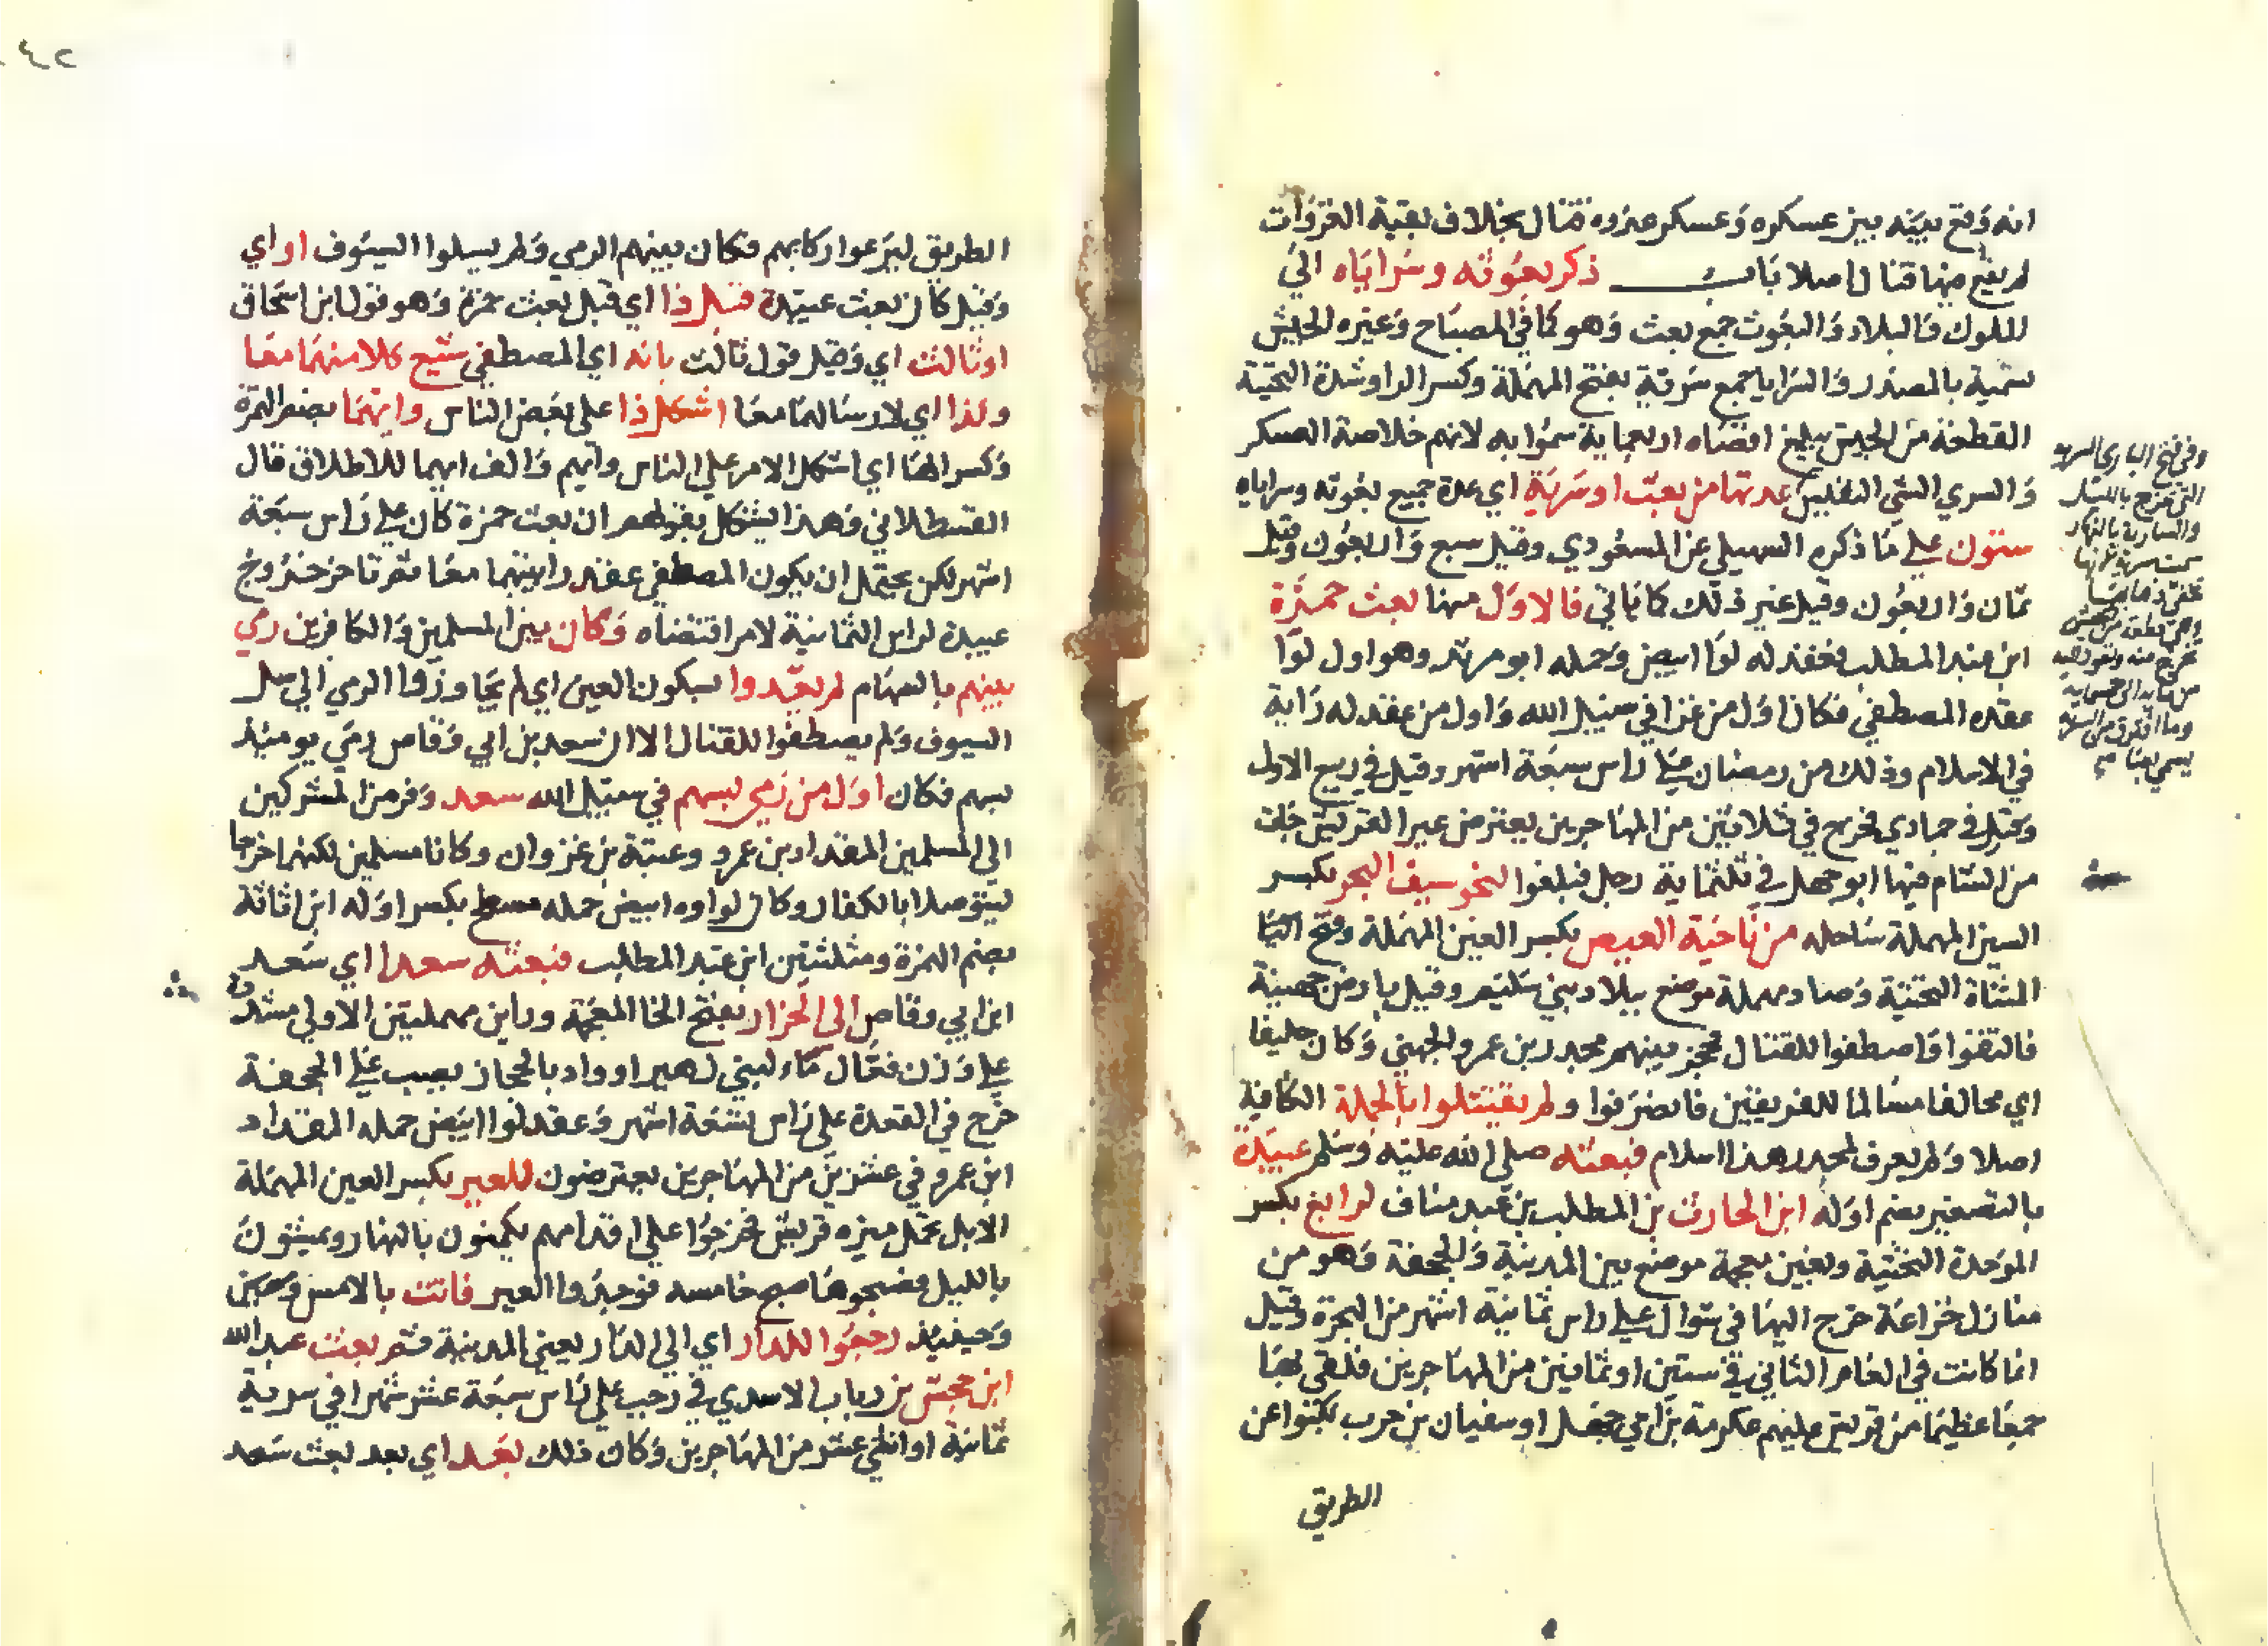 انه وقع بينه بين عسكره وعسكر عدوه قتال بخلاف بقية الغزوات
لم يقع فيها قتال اصلا باب ذكر بعوثه وسراياه الي
الملوك والبلاد والبعوث جمع بعث وهو كما في المصباح وغيره الجيش
تسمية بالمصدر والسرايا جمع سرية بفتح المهملة وكسر الراوشدة التحتية
القطعة من الجيش يبلغ اقصاه اربعماية سموا به لانهم خلاصة العسكر
والسري الشي النفيس عدتها من بعث او سرية اي عدة جميع بعوثه وسراياه
ستون علي ما ذكره السهيلي عن المسعودي وقيل سبع واربعون وقيل
ثمان واربعون وقيل غير ذلك كما ياتي فالاول منها بعث حمزة
ابن عبد المطلب فعقد له لوا ابيض وحمله ابو مرثد وهو اول لوا
عقده المصطفي فكان اول من غزا في سبيل الله واول من عقد له راية
في الاسلام وذلك من رمضان علي راس سبعة اشهر وقيل في ربيع الاول
وقيل في جمادي فخرج في ثلاثين من المهاجرين يعترض عيرا لقريش جات
من الشام فيها ابو جهل في ثلثماية رجل فبلغوا لنحو سيف البحر بكسر
السين المهملة ساحله من ناحية العيص بكسر العين المهملة وفتح اليا
المثناة التحتية وصاد مهملة موضع ببلاد بني سليم وقيل بارض جهينة
فالتقوا واصطفوا للقتال فحجز بينهم مجدي بن عمرو الجهني وكان حليفا
اي محالفا مسالما للفريقين فانصرفوا ولم يقتتلوا بالجملة الكافية
اصلا ولم يعرف لمجدي هذا اسلام فبعثه صلي الله عليه وسلم عبيدة
بالتصغير بضم اوله ابن الحارث بن المطلب بن عبد مناف لرابغ بكسر
الموحدة التحتية وبغين معجمة موضع بين المدينة والجحفة وهو من
منازل خزاعة خرج اليها في شوال علي راس ثمانية اشهر من الهجرة وقيل
انما كانت في العام الثاني في ستين او ثمانين من المهاجرين فلقي بها
جمعا عظيما من قريش عليهم عكرمة بن ابي جهل او سفيان بن حرب نكبوا عن
الطريق
وفي فتح الباري السرية
التي تخرج بالليل
والسارية بالنهار
سميت سرية لانها
تخفي ذهابها
وهي قطعة من الجيش
تخرج منه وتعود اليه
من ماية الي خمسماية
وما افترق من السرية
يسمي بعثا
الطريق ليرعوا ركابهم فكان بينهم الرمي ولم يسلوا السيوف او اي
وقيل كان بعث عبيدة قبل ذا اي قبل بعث حمزة وهو قول ابن اسحاق
او ثالث اي وقيل قول ثالث بانه اي المصطفي شيع كلا منهما معا
ولذا اي لارسالهما معا اشكل ذا علي بعض الناس وابهما بضم الهمزة
وكسر الها اي اشكل الامر علي الناس وابهم والف ابهما للاطلاق قال
القسطلاني وهذا يشكل بقولهم ان بعث حمزة كان علي راس سبعة
اشهر لكن يحتمل ان يكون المصطفي عقد رايتيهما معا ثم تاخر خروج
عبيدة لراس الثمانية لامر اقتضاه وكان بين المسلمين والكافرين رمي
بينهم بالسهام لم يعدوا بسكون العين اي لم يجاوزوا الرمي الي سل
السيوف ولم يصطفوا للقتال الا ان سعد بن ابي وقاص رمي يومئذ
بسهم فكان اول من رمي بسهم في سبيل الله سعد وفر من المشركين
الي المسلمين المقداد بن عمرو وعتبة بن غزوان وكانا مسلمين لكنهما خرجا
ليتوصلا بالكفار وكان لواوه ابيض حمله مسطح بكسر اوله ابن اثاثة
بضم الهمزة ومثلثتين ابن عبد المطلب فبعثه سعدا اي سعد
ابن ابي وقاص الي الخرار بفتح الخا المعجمة وراين مهملتين الاولي مشددة
علي وزن فعال ماء لبني زهير او واد بالحجاز يصب علي الجحفة
خرج في القعدة علي راس تسعة اشهر وعقد لوا ابيض حمله المقداد
ابن عمرو في عشرين من المهاجرين يعترضون للعير بكسر العين المهملة
الابل تحمل ميزه قريش فخرجوا علي اقدامهم يكمنون بالنهار ويمشون
بالليل فصبحوها صبح خامسه فوجدوا العير فاتت بالامس وحين
وحينئذ رجعوا للدار اي الي الدار يعني المدينة ثم بعث عبد الله
ابن جحش بن رياب الاسدي في رجب علي راس سبعة عشر شهرا في سرية
ثمانية او اثني عشر من المهاجرين وكان ذلك بعد اي بعد بعث سعد